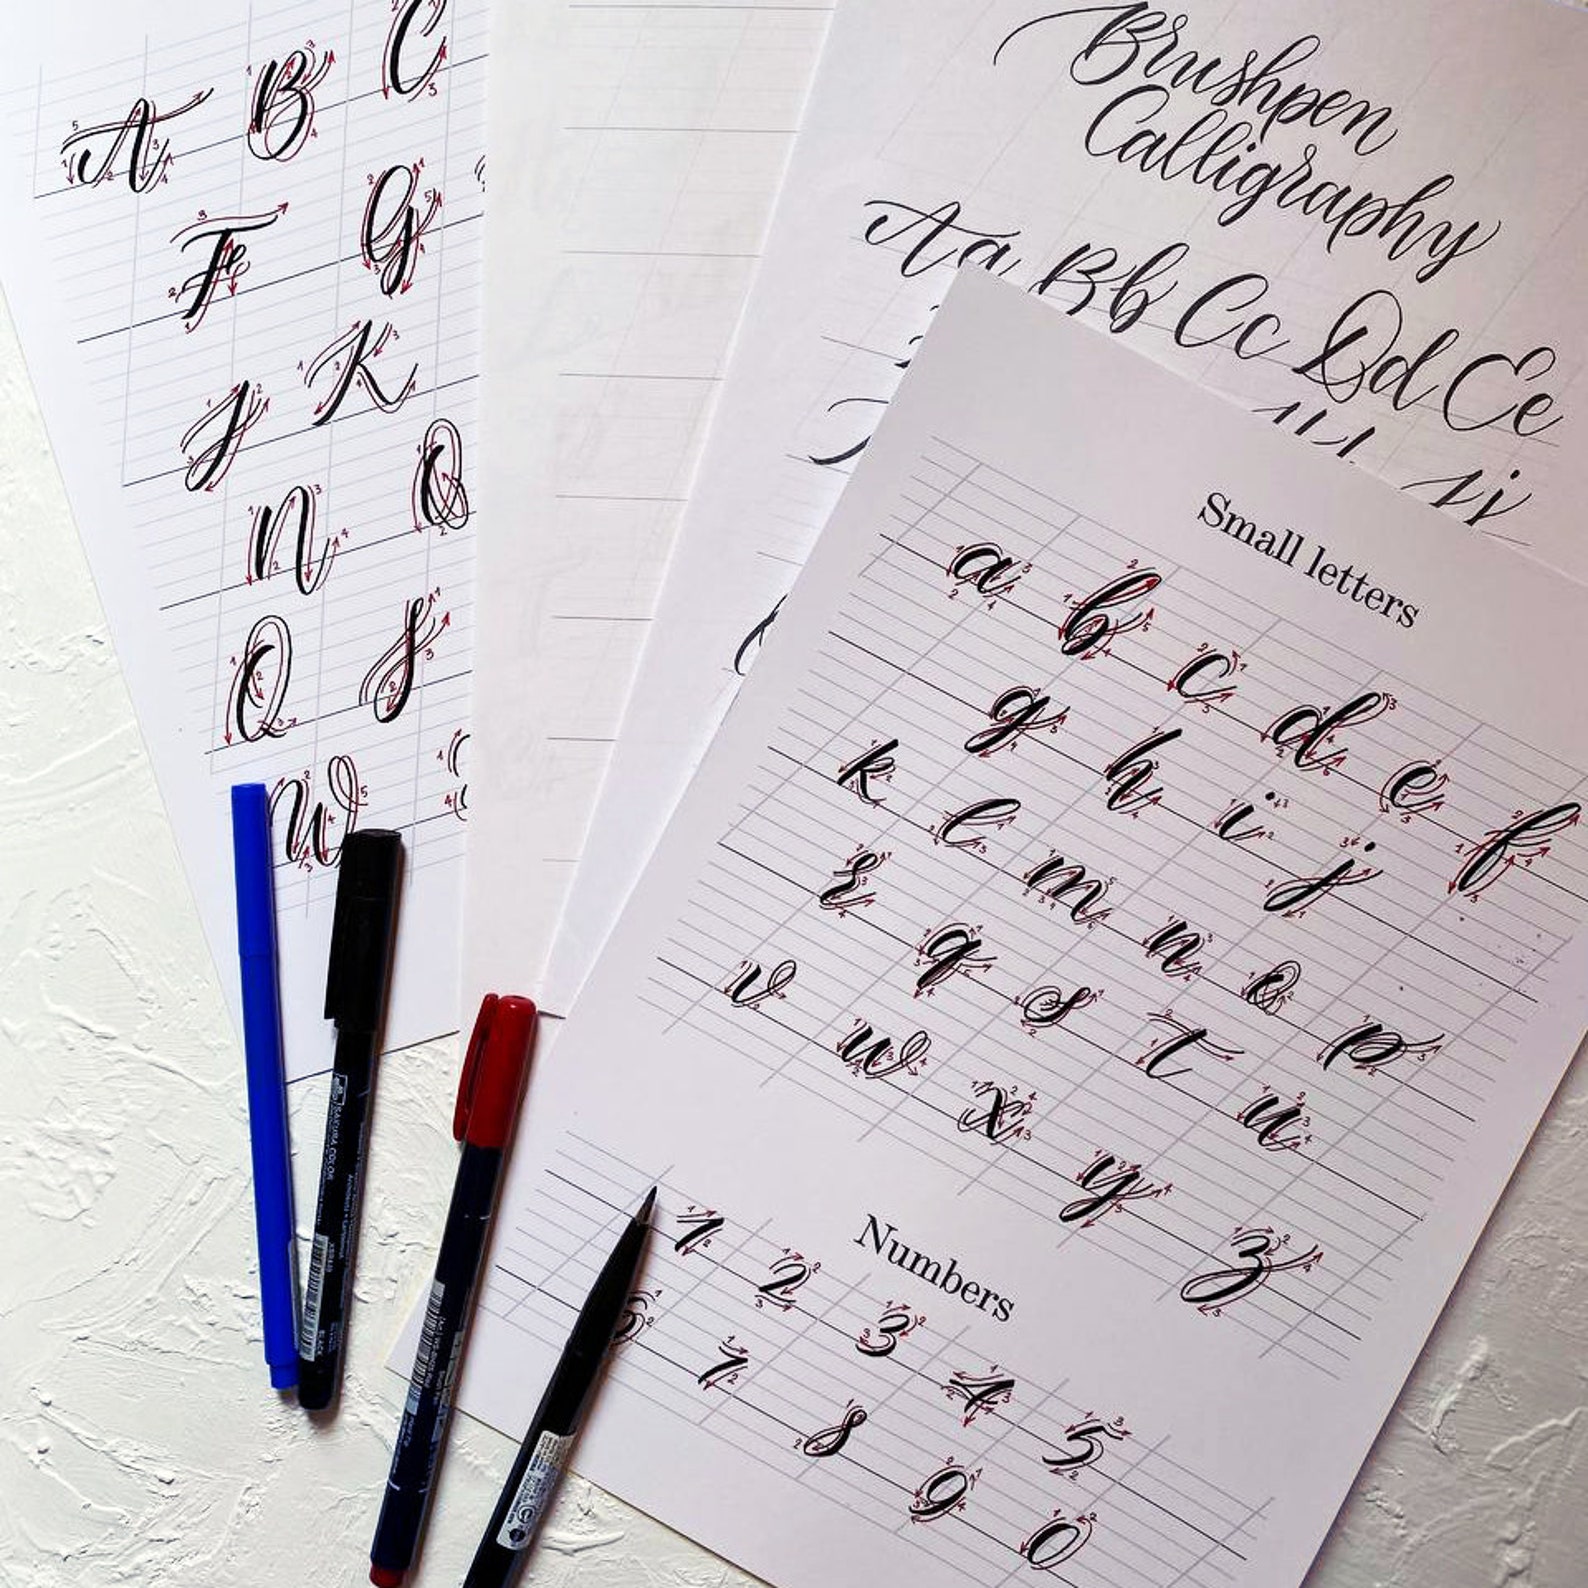 A B C
F G
J K
N O
Q S
W
Brushpen
Calligraphy
Aa Bb Cc Dd Ee
Small letters
a b c d e f
g h i j
k l m n o p
r q s t u
v w x y z
Numbers
1 2 3 4 5
6 7 8 9 0
SAKURA COLOR
BLACK